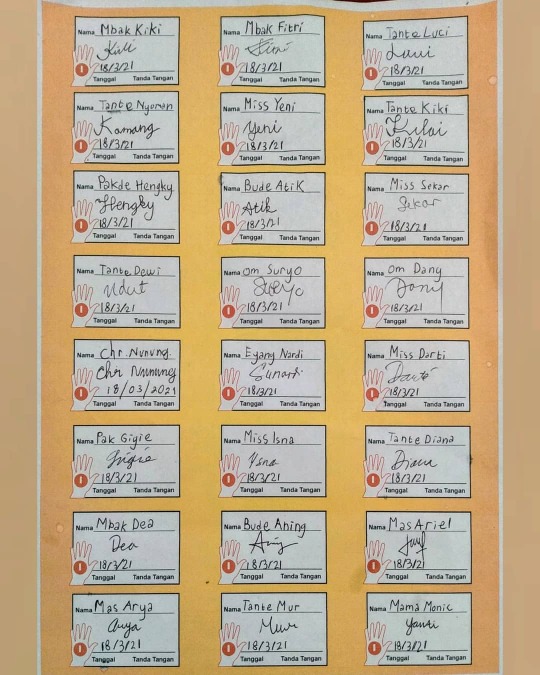 Nama Mbak Kiki
Kiki
18/3/21
Tanggal Tanda Tangan
Nama Mbak Fitri
Fitri
18/3/21
Tanggal Tanda Tangan
Nama Tante Luci
Luci
18/3/21
Tanggal Tanda Tangan
Nama Tante Nyoman
Komang
18/3/21
Tanggal Tanda Tangan
Nama Miss Yeni
Yeni
18/3/21
Tanggal Tanda Tangan
Nama Tante Kiki
18/3/21
Tanggal Tanda Tangan
Nama Pakde Hengky
Hengky
18/3/21
Tanggal Tanda Tangan
Nama Bude Atik
Atik
18/3/21
Tanggal Tanda Tangan
Nama Miss Sekar
Sekar
18/3/21
Tanggal Tanda Tangan
Nama Tante Dewi
18/3/21
Tanggal Tanda Tangan
Nama om Suryo
Suryo
18/3/21
Tanggal Tanda Tangan
Nama om Dang
18/3/21
Tanggal Tanda Tangan
Nama Chr Nunung
Chr Nunung
18/03/2021
Tanggal Tanda Tangan
Nama Eyang Nardi
Sunardi
18/3/21
Tanggal Tanda Tangan
Nama Miss Darti
18/3/21
Tanggal Tanda Tangan
Nama Pak Gigie
Gigie
18/3/21
Tanggal Tanda Tangan
Nama Miss Isna
Isna
18/3/21
Tanggal Tanda Tangan
Nama Tante Diana
Diana
18/3/21
Tanggal Tanda Tangan
Nama Mbak Dea
Dea
18/3/21
Tanggal Tanda Tangan
Nama Bude Aning
18/3/21
Tanggal Tanda Tangan
Nama Mas Ariel
18/3/21
Tanggal Tanda Tangan
Nama Mas Arya
Arya
18/3/21
Tanggal Tanda Tangan
Nama Tante Mur
18/3/21
Tanggal Tanda Tangan
Nama Mama Monic
18/3/21
Tanggal Tanda Tangan